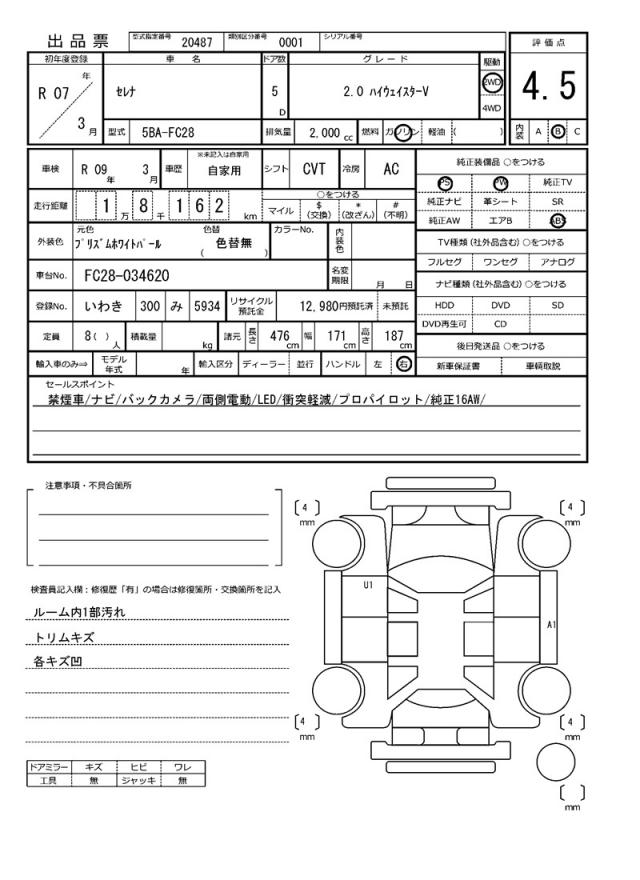 出品票 型式指定番号 20487 類別区分番号 0001 シリアル番号
初年度登録 車 名 ドア数 グレード 駆動 評価点
R 07 年 3 月 セレナ 5 D 2.0 ハイウェイスターV 2WD 4WD 4.5
型式 5BA-FC28 排気量 2,000 cc 燃料 ガソリン 軽油 ( ) 内装 A B C
車検 R 09 年 3 月 車歴 ※未記入は自家用 自家用 シフト CVT 冷房 AC 純正装備品 ○をつける
PS PW 純正TV
走行距離 1 万 8 千 1 6 2 km ○をつける 純正ナビ 革シート SR
マイル $ (交換) * (改ざん) # (不明) 純正AW エアB ABS
外装色 元色 プリズムホワイトパール 色替 ( 色替無 ) カラーNo. 内装色 TV種類 (社外品含む) ○をつける
フルセグ ワンセグ アナログ
車台No. FC28-034620 名変期限 月 日 ナビ種類 (社外品含む) ○をつける
登録No. いわき 300 み 5934 リサイクル預託金 12,980円預託済 未預託 HDD DVD SD
DVD再生可 CD
定員 8 ( ) 人 積載量 kg 諸元 長さ 476 cm 幅 171 cm 高さ 187 cm 後日発送品 ○をつける
輸入車のみ⇒ モデル年式 年 輸入区分 ディーラー 並行 ハンドル 左 右 新車保証書 車輌取説
セールスポイント
禁煙車/ナビ/バックカメラ/両側電動/LED/衝突軽減/プロパイロット/純正16AW/
注意事項・不具合箇所
[ 4 ] mm
[ 4 ] mm
検査員記入欄：修復歴「有」の場合は修復箇所・交換箇所を記入
U1
ルーム内1部汚れ
A1
トリムキズ
各キズ凹
[ 4 ] mm
[ 4 ] mm
ドアミラー キズ ヒビ ワレ
工具 無 ジャッキ 無
[ ] mm